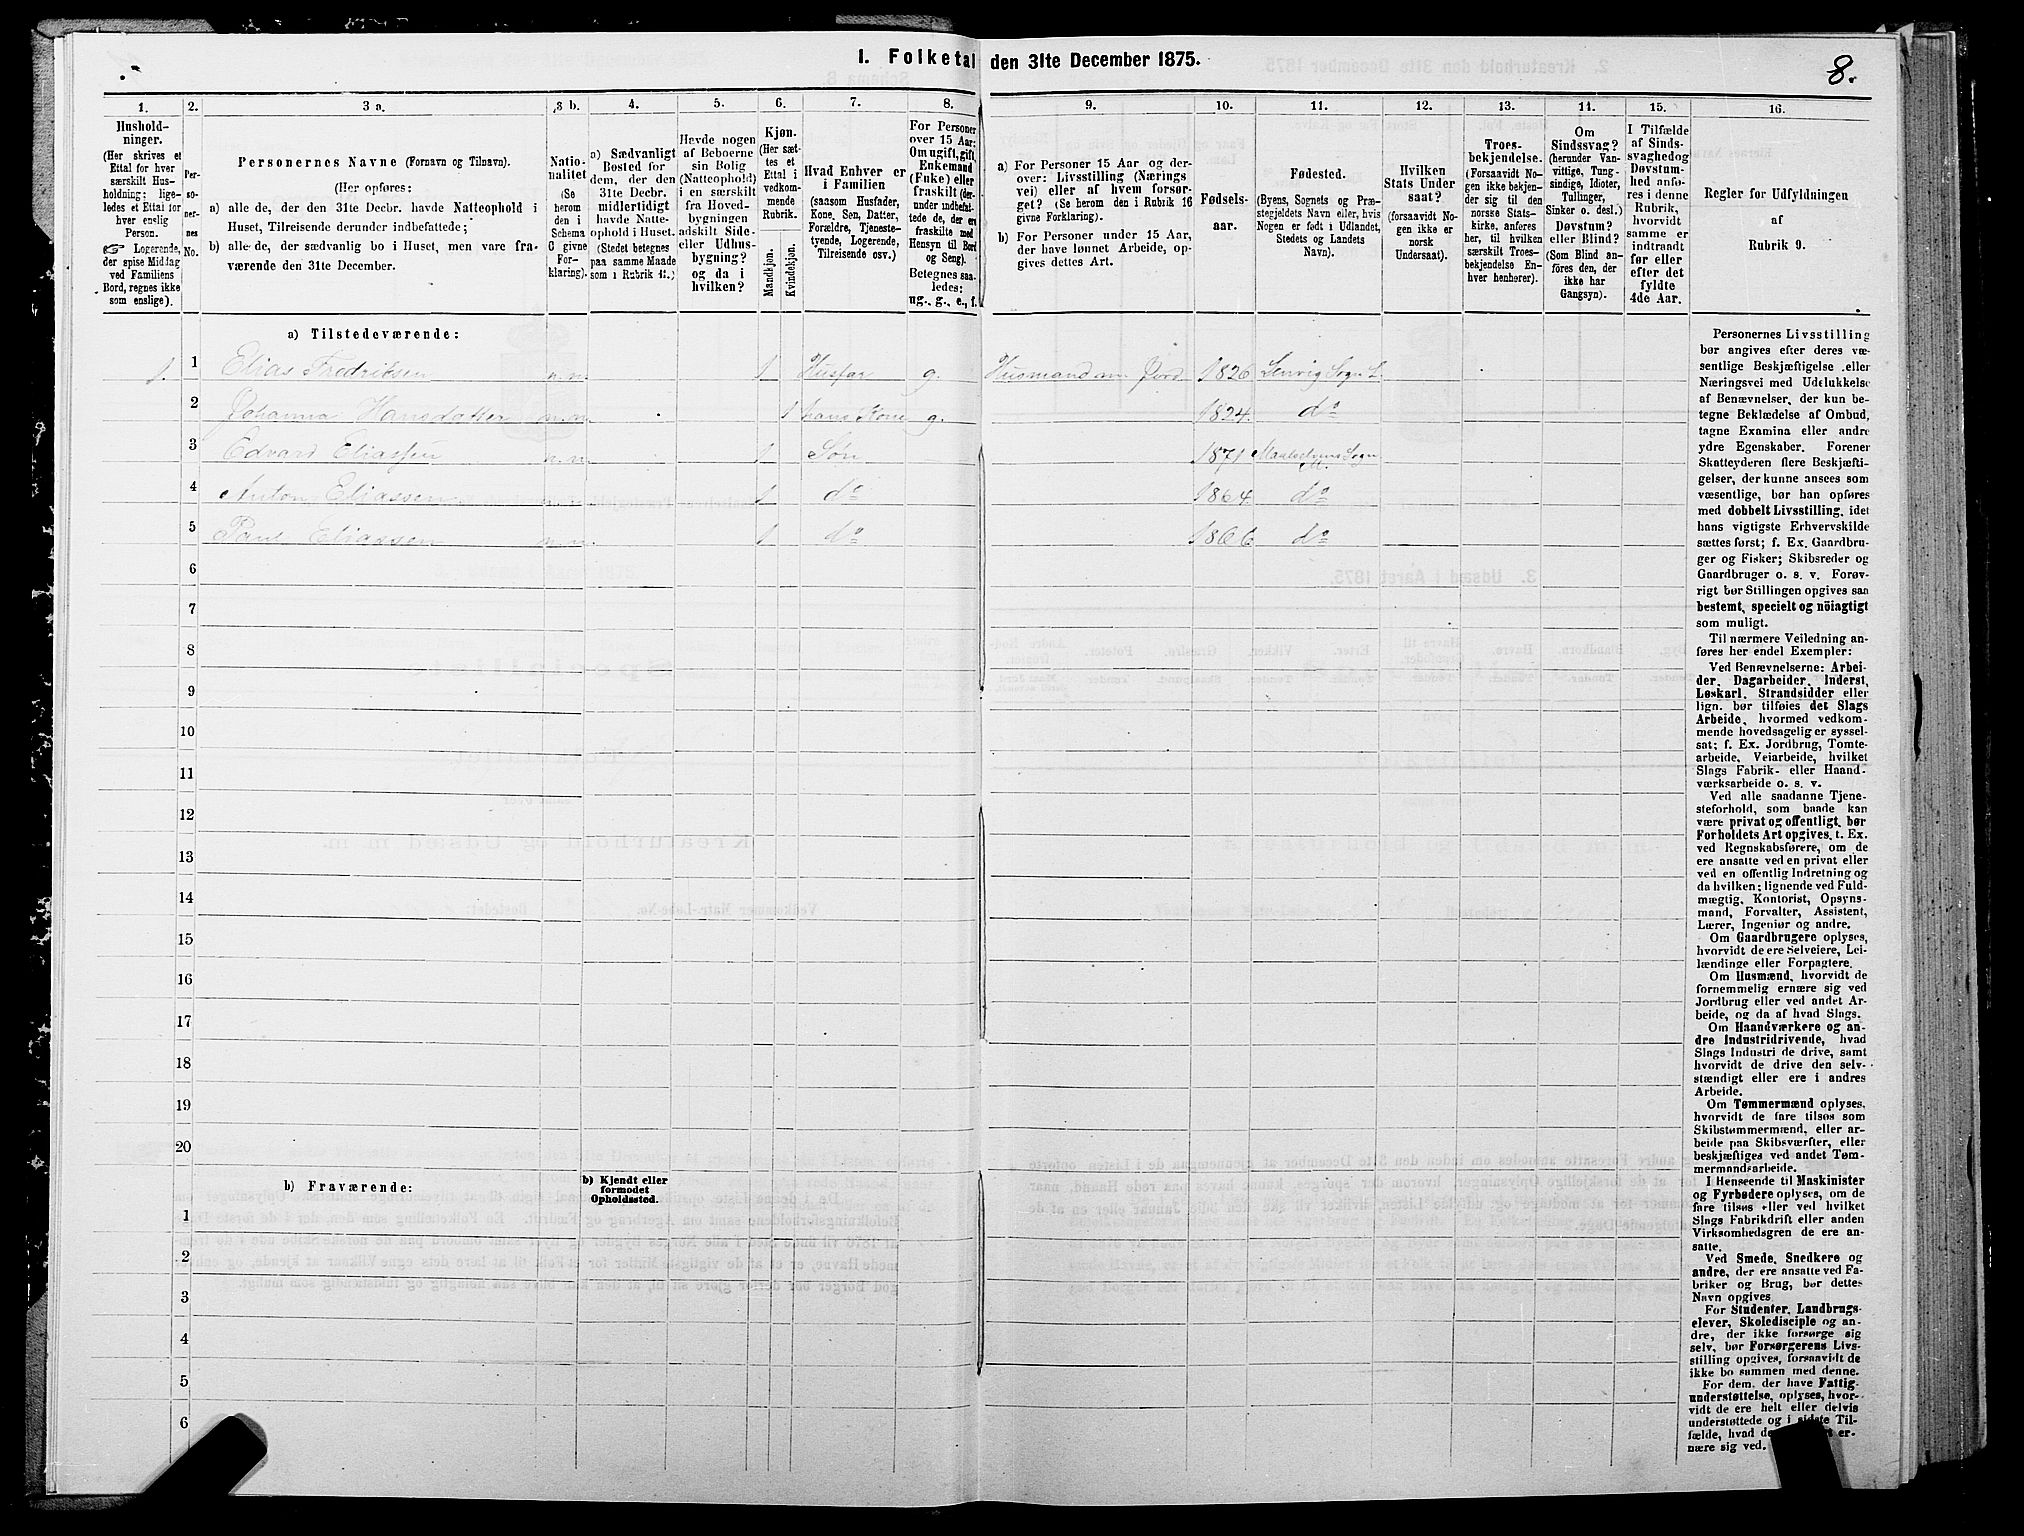 I. Folketal den 31te December 1875.
8.
1.
Husholdninger.
(Her skrives et Ettal for hver særskilt Husholdning; ligeledes et Ettal for hver enslig Person.
☞ Logerende, der spise Middag ved Familiens Bord, regnes ikke som enslige).
2.
Personernes No.
3 a.
Personernes Navne (Fornavn og Tilnavn).
(Her opføres:
a) alle de, der den 31te Decbr. havde Natteophold i Huset, Tilreisende derunder indbefattede;
b) alle de, der sædvanlig bo i Huset, men vare fraværende den 31te December.
3 b.
Nationalitet
(Se herom den i Schema C givne Forklaring).
4.
a) Sædvanligt Bosted for dem, der den 31te Decbr. midlertidigt havde Natteophold i Huset. (Stedet betegnes paa samme Maade som i Rubrik 11.)
5.
Havde nogen af Beboerne sin Bolig (Natteophold) i en særskilt fra Hovedbygningen adskilt Side- eller Udhusbygning? og da i hvilken?
6.
Kjøn.
(Her sættes et Ettal i vedkommende Rubrik.
Mandkjøn.
Kvindekjøn.
7.
Hvad Enhver er i Familien
(saasom Husfader, Kone, Søn, Datter, Forældre, Tjenestetyende, Logerende, Tilreisende osv.)
8.
For Personer over 15 Aar: Om ugift, gift, Enkemand (Enke) eller fraskilt (derunder indbefattede de, der ere fraskilte med Hensyn til Bord og Seng).
Betegnes saaledes:
ug., g., e., f.
9.
a) For Personer 15 Aar og derover: Livsstilling (Næringsvei) eller af hvem forsørget? (Se herom den i Rubrik 16 givne Forklaring).
b) For Personer under 15 Aar, der have lønnet Arbeide, opgives dettes Art.
10.
Fødselsaar.
11.
Fødested.
(Byens, Sognets og Præstegjeldets Navn eller, hvis Nogen er født i Udlandet, Stedets og Landets Navn).
12.
Hvilken Stats Undersaat?
(forsaavidt Nogen ikke er norsk Undersaat).
13.
Troesbekjendelse.
(Forsaavidt Nogen ikke bekjender sig til den norske Statskirke, anføres her, til hvilken særskilt Troesbekjendelse Enhver henhører).
14.
Om Sindssvag?
(herunder Vanvittige, Tungsindige, Idioter, Tullinger, Sinker o. desl.)
Døvstum? eller Blind?
(Som Blind anføres den, der ikke har Gangsyn).
15.
I Tilfælde af Sindssvaghed og Døvstumhed anføres i denne Rubrik, hvorvidt samme er indtraadt før eller efter det fyldte 4de Aar.
16.
Regler for Udfyldningen af Rubrik 9.
a) Tilstedeværende:
1. 1 Elias Fredriksen n.n. 1 Husfar g. Husmand m Jord 1826 Lenvig Sogn L.
2 Johanna Hansdatter n.n. 1 hans Kone g. 1824. do
3 Edvard Eliassen n.n. 1 Søn 1871 Maalselvens Sogn M.
4 Anton Eliassen n.n. 1 do 1864. do
5 Paul Eliassen n.n. 1 do 1866 do
6
7
8
9
10
11
12
13
14
15
16
17
18
19
20
b) Fraværende:
b) Kjendt eller formodet Opholdssted.
1
2
3
4
5
6
Personernes Livsstilling
bør angives efter deres væ-
sentlige Beskjæftigelse eller
Næringsvei med Udelukkelse
af Benævnelser, der kun be-
tegne Beklædelse af Ombud,
tagne Examina eller andre
ydre Egenskaber. Forener
Skatteyderen flere Beskjæfti-
gelser, der kunne ansees som
væsentlige, bør han opføres
med dobbelt Livsstilling, idet
hans vigtigste Erhvervskilde
sættes først; f. Ex. Gaardbru-
ger og Fisker; Skibsreder og
Gaardbruger o. s. v. Forøv-
rigt bør Stillingen opgives saa
bestemt, specielt og nöiagtigt
som muligt.
Til nærmere Veiledning an-
føres her endel Exempler:
Ved Benævnelserne: Arbei-
der, Dagarbeider, Inderst,
Løskarl, Strandsidder eller
lign. bør tilføies det Slags
Arbeide, hvormed vedkom-
mende hovedsagelig er syssel-
sat; f. Ex. Jordbrug, Tomte-
arbeide, Veiarbeide, hvilket
Slags Fabrik- eller Haand-
værksarbeide o. s. v.
Ved alle saadanne Tjene-
steforhold, som baade kan
være privat og offentligt, bør
Forholdets Art opgives, t. Ex.
ved Regnskabsførere, om de
ere ansatte ved en privat eller
ved en offentlig Indretning og
da hvilken; lignende ved Fuld-
mægtig, Kontorist, Opsyns-
mand, Forvalter, Assistent,
Lærer, Ingeniør og andre.
Om Gaardbrugere oplyses,
hvorvidt de ere Selveiere, Lei-
lændinge eller Forpagtere.
Om Husmænd, hvorvidt de
fornemmelig ernære sig ved
Jordbrug eller ved andet Ar-
beide, og da af hvad Slags.
Om Haandværkere og an-
dre Industridrivende, hvad
Slags Industri de drive, samt
hvorvidt de drive den selv-
stændigt eller ere i andres
Arbeide.
Om Tømmermænd oplyses,
hvorvidt de fare tilsøs som
Skibstømmermænd, eller ar-
beide paa Skibsværfter, eller
beskjæftiges ved andet Tøm-
mermandsarbeide.
I Henseende til Maskinister
og Fyrbødere oplyses, om de
fare tilsøs eller ved hvilket
Slags Fabrikdrift eller anden
Virksomhedsgren de ere an-
satte.
Ved Smede, Snedkere og
andre, der ere ansatte ved Fa-
briker og Brug, bør dettes
Navn opgives.
For Studenter, Landbrugs-
elever, Skoledisciple og an-
dre, der ikke forsørge sig
selv, bør Forsørgerens Livs-
stilling opgives, forsaavidt de
ikke bo sammen med denne.
For dem, der have Fattig-
understøttelse, oplyses, hvor-
vidt de ere helt eller delvis
understøttede og i sidste Til-
fælde, hvad de er-
nære sig ved.